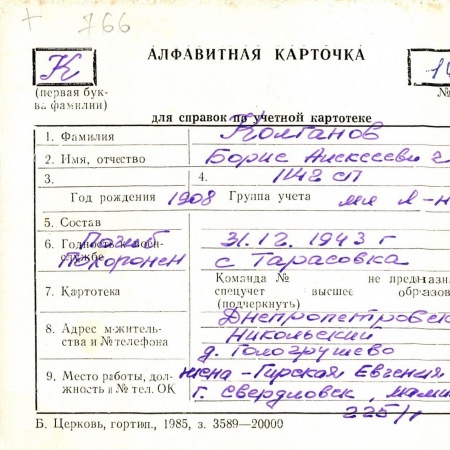 766
АЛФАВИТНАЯ КАРТОЧКА
К
(первая бук-
ва фамилии)
№
для справок по учетной картотеке
1. Фамилия Колганов
2. Имя, отчество Борис Алексеевич
3. 4. 1142 сп
Год рождения 1908 Группа учета мл л-н
5. Состав
6. Годность к воен- Погиб 31.12.1943 г
службе похоронен с Тарасовка
7. Картотека Команда № не предназна
спецучет высшее образов
(подчеркнуть)
Днепропетровск
8. Адрес м-житель- Никольский
ства и № телефона д. Гологрушево
9. Место работы, дол- жена - Гирская Евгения
жность и № тел. ОК г. Свердловск,
225/
Б. Церковь, гортип., 1985, з. 3589—20000